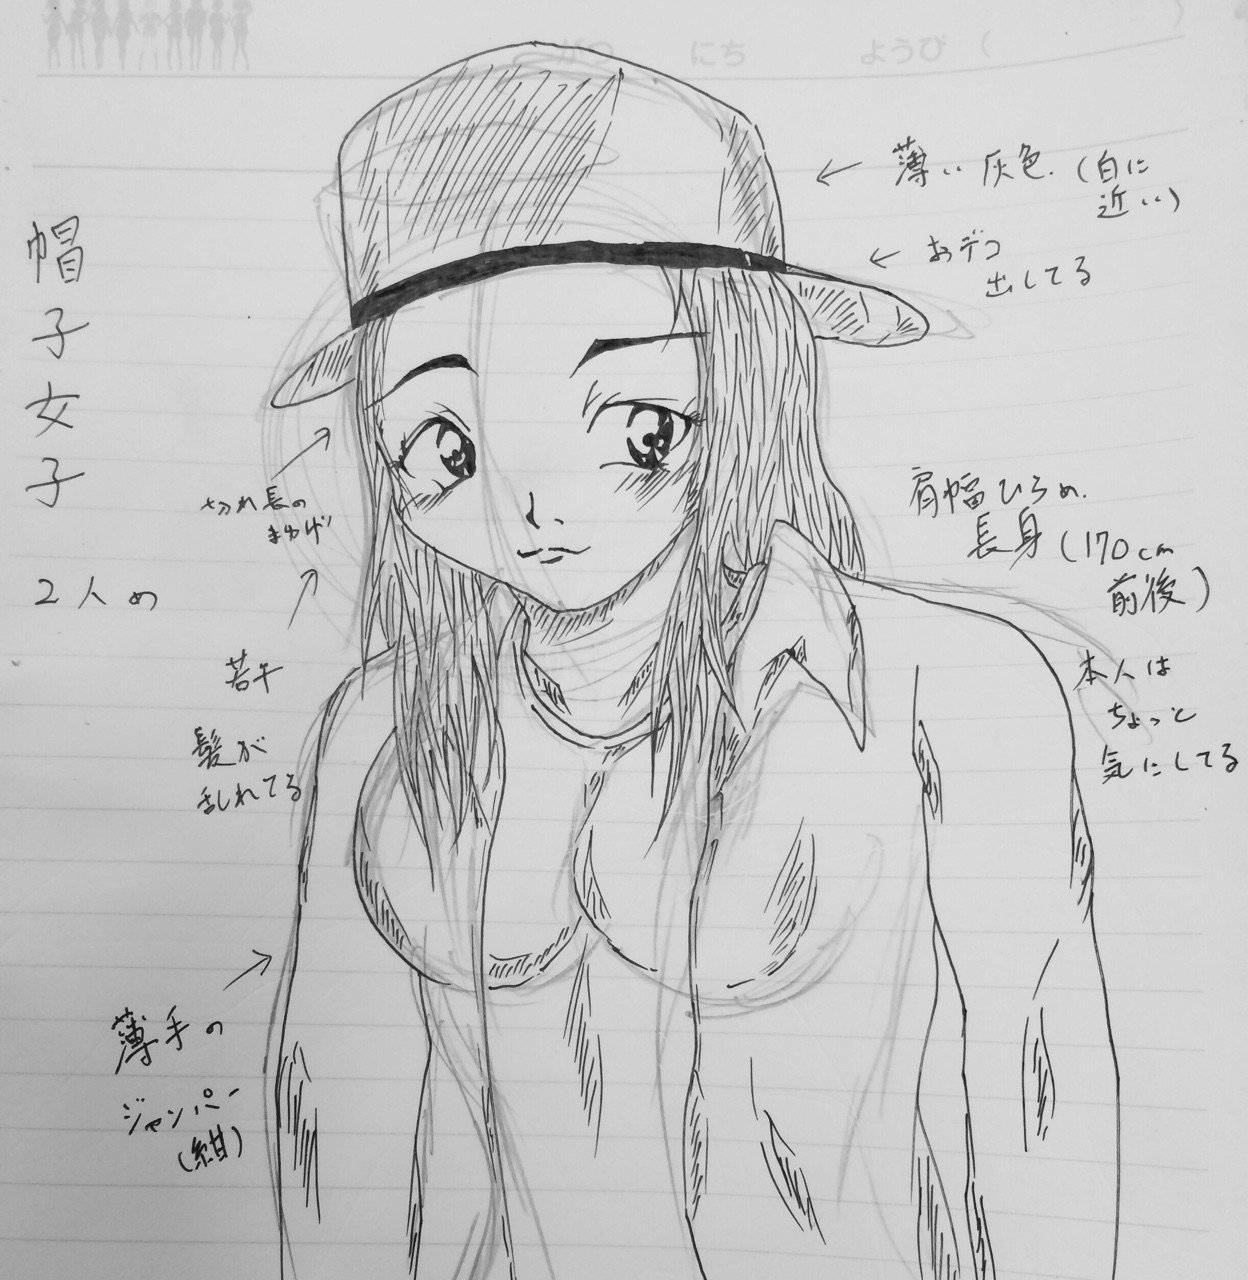 がつ　にち　ようび（　）
薄い灰色.（白に
近い）
おデコ
出してる
帽子女子
2人め
切れ長の
まゆげ
若干
髪が
乱れてる
肩幅ひろめ.
長身（170cm
前後）
本人は
ちょっと
気にしてる
薄手の
ジャンパー
（紺）